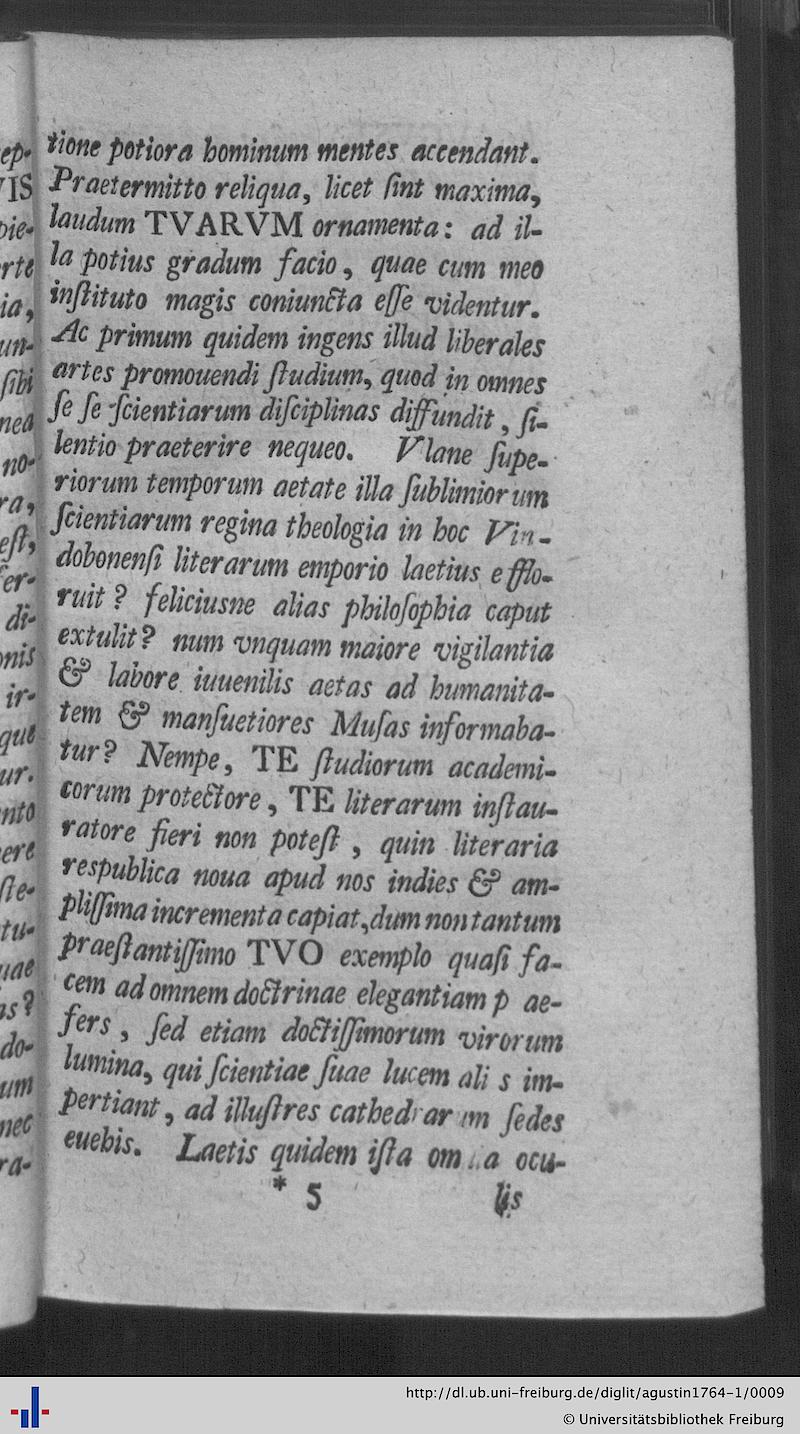 tione potiora hominum mentes accendant.
Praetermitto reliqua, licet ſint maxima,
laudum TVARVM ornamenta: ad il-
la potius gradum facio, quae cum meo
inſtituto magis coniuncta eſſe videntur.
Ac primum quidem ingens illud liberales
artes promouendi ſtudium, quod in omnes
ſe ſe ſcientiarum diſciplinas diffundit, ſi-
lentio praeterire nequeo. Vlane ſupe-
riorum temporum aetate illa ſublimiorum
ſcientiarum regina theologia in hoc Vin-
dobonenſi literarum emporio laetius efflo-
ruit? feliciusne alias philoſophia caput
extulit? num vnquam maiore vigilantia
& labore iuuenilis aetas ad humanita-
tem & manſuetiores Muſas informaba-
tur? Nempe, TE ſtudiorum academi-
corum protectore, TE literarum inſtau-
ratore fieri non poteſt, quin literaria
respublica noua apud nos indies & am-
pliſſima incrementa capiat, dum non tantum
praeſtantiſſimo TVO exemplo quaſi fa-
cem ad omnem doctrinae elegantiam p ae-
fers, ſed etiam doctiſſimorum virorum
lumina, qui ſcientiae ſuae lucem ali s im-
pertiant, ad illuſtres cathedrar m ſedes
euehis. Laetis quidem iſta om a ocu-
* 5 lis
ep-
VIS
pie-
rte
ia,
un-
ſibi
nea
no-
ra,
eſt,
er-
di-
onis
ir-
que
ur.
nto
ere
ſte-
tu-
uae
as?
do-
um
nec
ra-
http://dl.ub.uni-freiburg.de/diglit/agustin1764-1/0009
© Universitätsbibliothek Freiburg